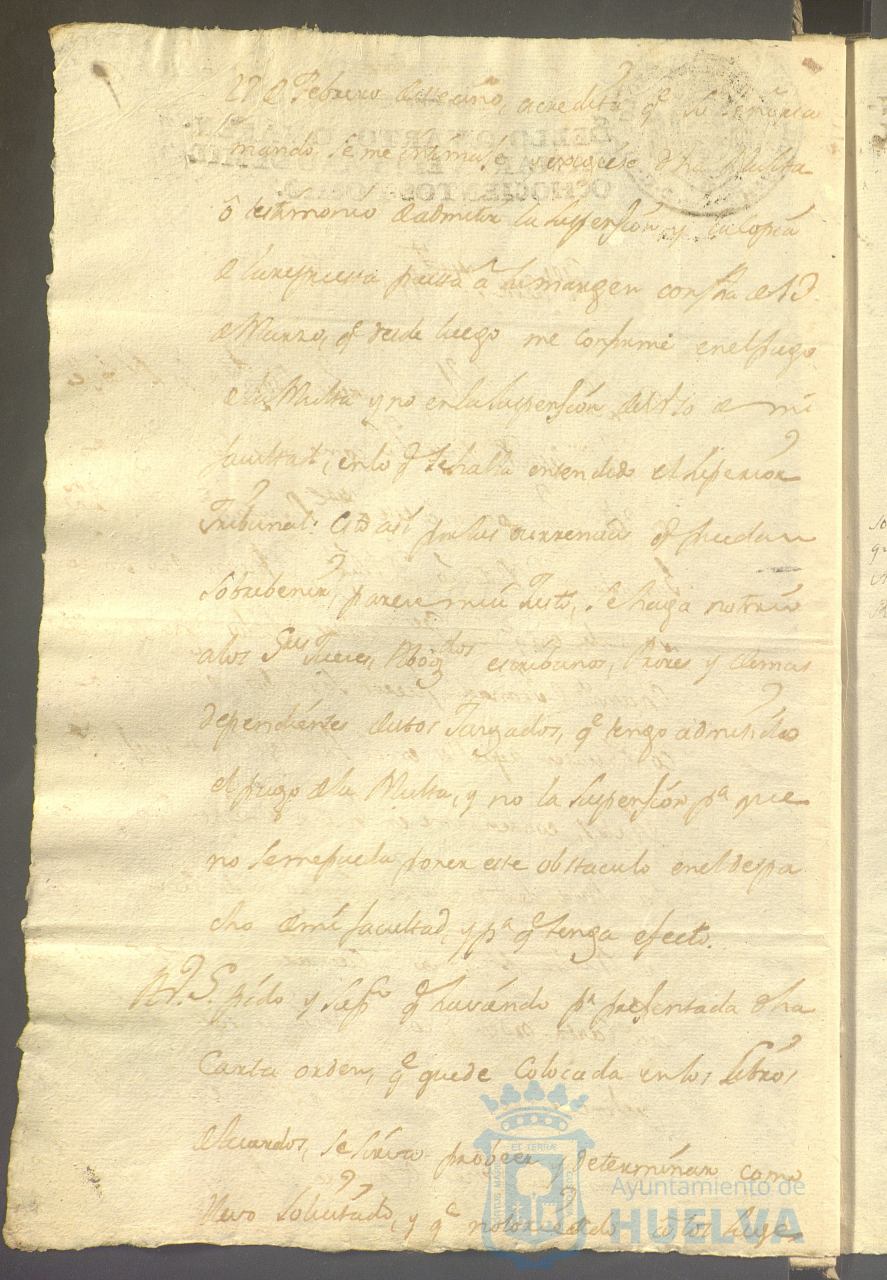 27 de Febrero de este año, acredita q.e su Señoria
mando se me intimase y exigiese dha Multa
ô testimonio de admitir la suspensión, y la copia
de la respuesta puesta a su margen con fha de 13
de Marzo, q.e desde luego me conformé en el pago
de la Multa y no en la suspensión del Uso de mi
facultad, en lo q.e se halla entendido el Superior
Tribunal: Esto asi por las ocurrencias q.e puedan
sobrebenir, parece mui Justo, se haga notorio
a los S.res Jueces, Abog.dos escribanos, Pro.res y demas
dependientes de estos Juzgados, q.e tengo admitido
el pago de la Multa, y no la suspensión p.a que
no se me pueda poner este obstaculo en el despa
cho de mi facultad, y p.a q.e tenga efecto.
A V.S. pido y sup.co q.e haviendo p.r presentada dha
Carta orden, q.e quede colocada en los Libros
de acuerdos, se sirva probeer y determinar como
llevo solicitado, y q.e
Ayuntamiento de
HUELVA